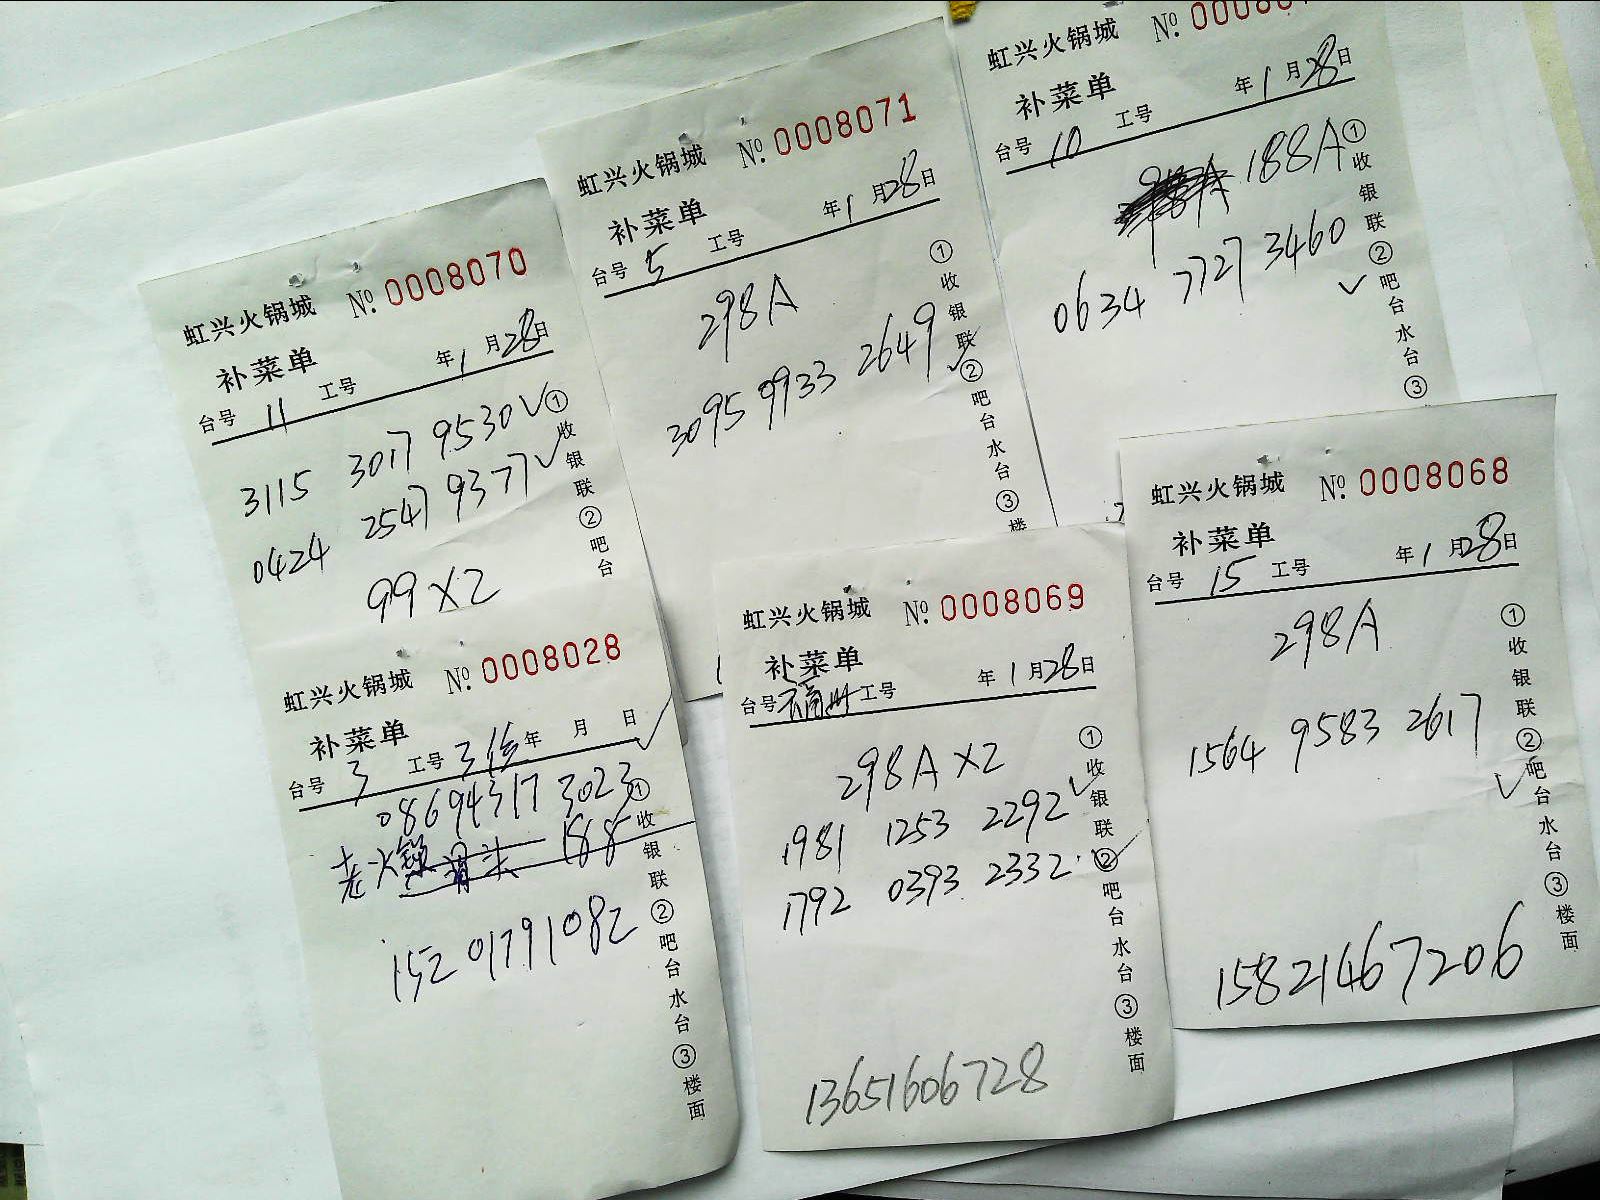 虹兴火锅城 №.0008070
补菜单 年1月28日
台号 11 工号
3115 3017 9530√
0424 2547 9377√
99×2
①收银联②吧台
虹兴火锅城 №.0008028
补菜单 年 月 日
台号 3 工号
08694317 3023
188
152 01791082
①收银联②吧台水台③楼面
虹兴火锅城 №.0008071
补菜单 年1月28日
台号 5 工号
298A
3095 9933 2649
①收银联②吧台水台③楼
虹兴火锅城 №.
补菜单 年1月28日
台号 10 工号
188A
0634 7727 3460
①收银联②吧台水台③
虹兴火锅城 №.0008069
补菜单 年1月28日
台号 工号
298A×2
1981 1253 2292
1792 0393 2332
13651606728
①收银联②吧台水台③楼面
虹兴火锅城 №.0008068
补菜单 年1月28日
台号 15 工号
298A
1564 9583 2617
15821467206
①收银联②吧台水台③楼面